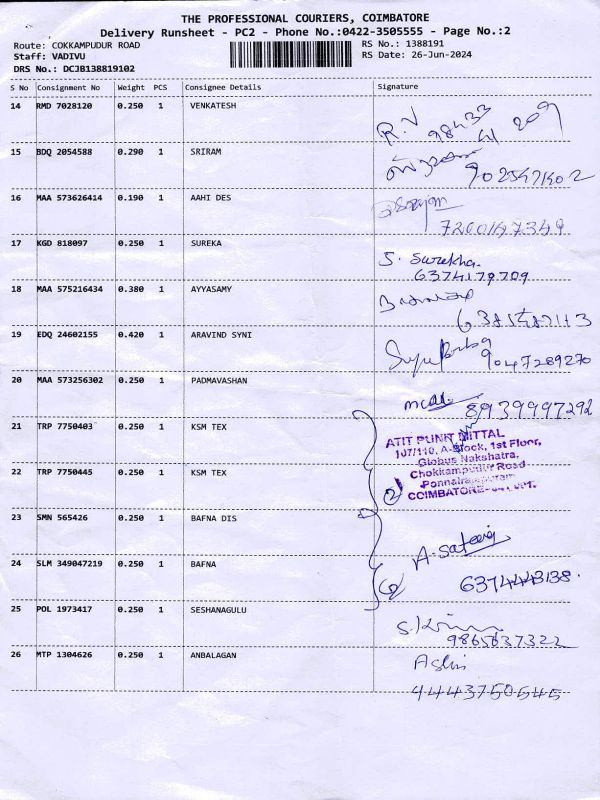 THE PROFESSIONAL COURIERS, COIMBATORE
Delivery Runsheet - PC2 - Phone No.:0422-3505555 - Page No.:2
Route: COKKAMPUDUR ROAD
Staff: VADIVU
DRS No.: DCJB138819102
RS No.: 1388191
RS Date: 26-Jun-2024
S No Consignment No Weight PCS Consignee Details Signature
14 RMD 7028120 0.250 1 VENKATESH
R.V 98433
15 BDQ 2054588 0.290 1 SRIRAM
16 MAA 573626414 0.190 1 AAHI DES
17 KGD 818097 0.250 1 SUREKA
S. Surekha.
6374179709
18 MAA 575216434 0.380 1 AYYASAMY
19 EDQ 24602155 0.420 1 ARAVIND SYNI
9047289270
20 MAA 573256302 0.250 1 PADMAVASHAN
8939997292
21 TRP 7750403 0.250 1 KSM TEX
ATIT PUNIT MITTAL
107/110, A-Block, 1st Floor,
Globus Nakshatra,
Chokkampudur Road
22 TRP 7750445 0.250 1 KSM TEX
COIMBATORE
23 SMN 565426 0.250 1 BAFNA DIS
A. Sateesh
24 SLM 349047219 0.250 1 BAFNA
6374443138.
25 POL 1973417 0.250 1 SESHANAGULU
9865637322
26 MTP 1304626 0.250 1 ANBALAGAN
9443750545